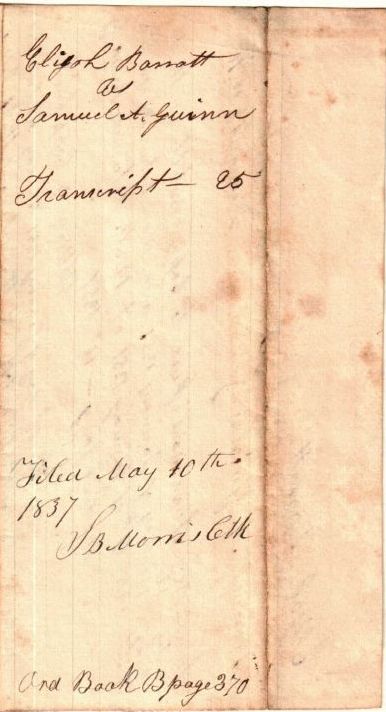 Elijah Barratt
vs
Samuel A. Guinn
Transcript — 25
Filed May 10th
1837
S B Morris Clk
Ord Book B page 370